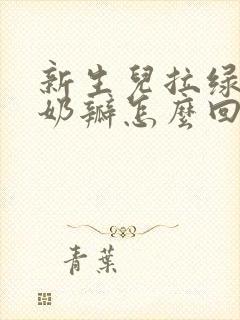 新生兒拉绿
奶瓣怎麼回
青葉